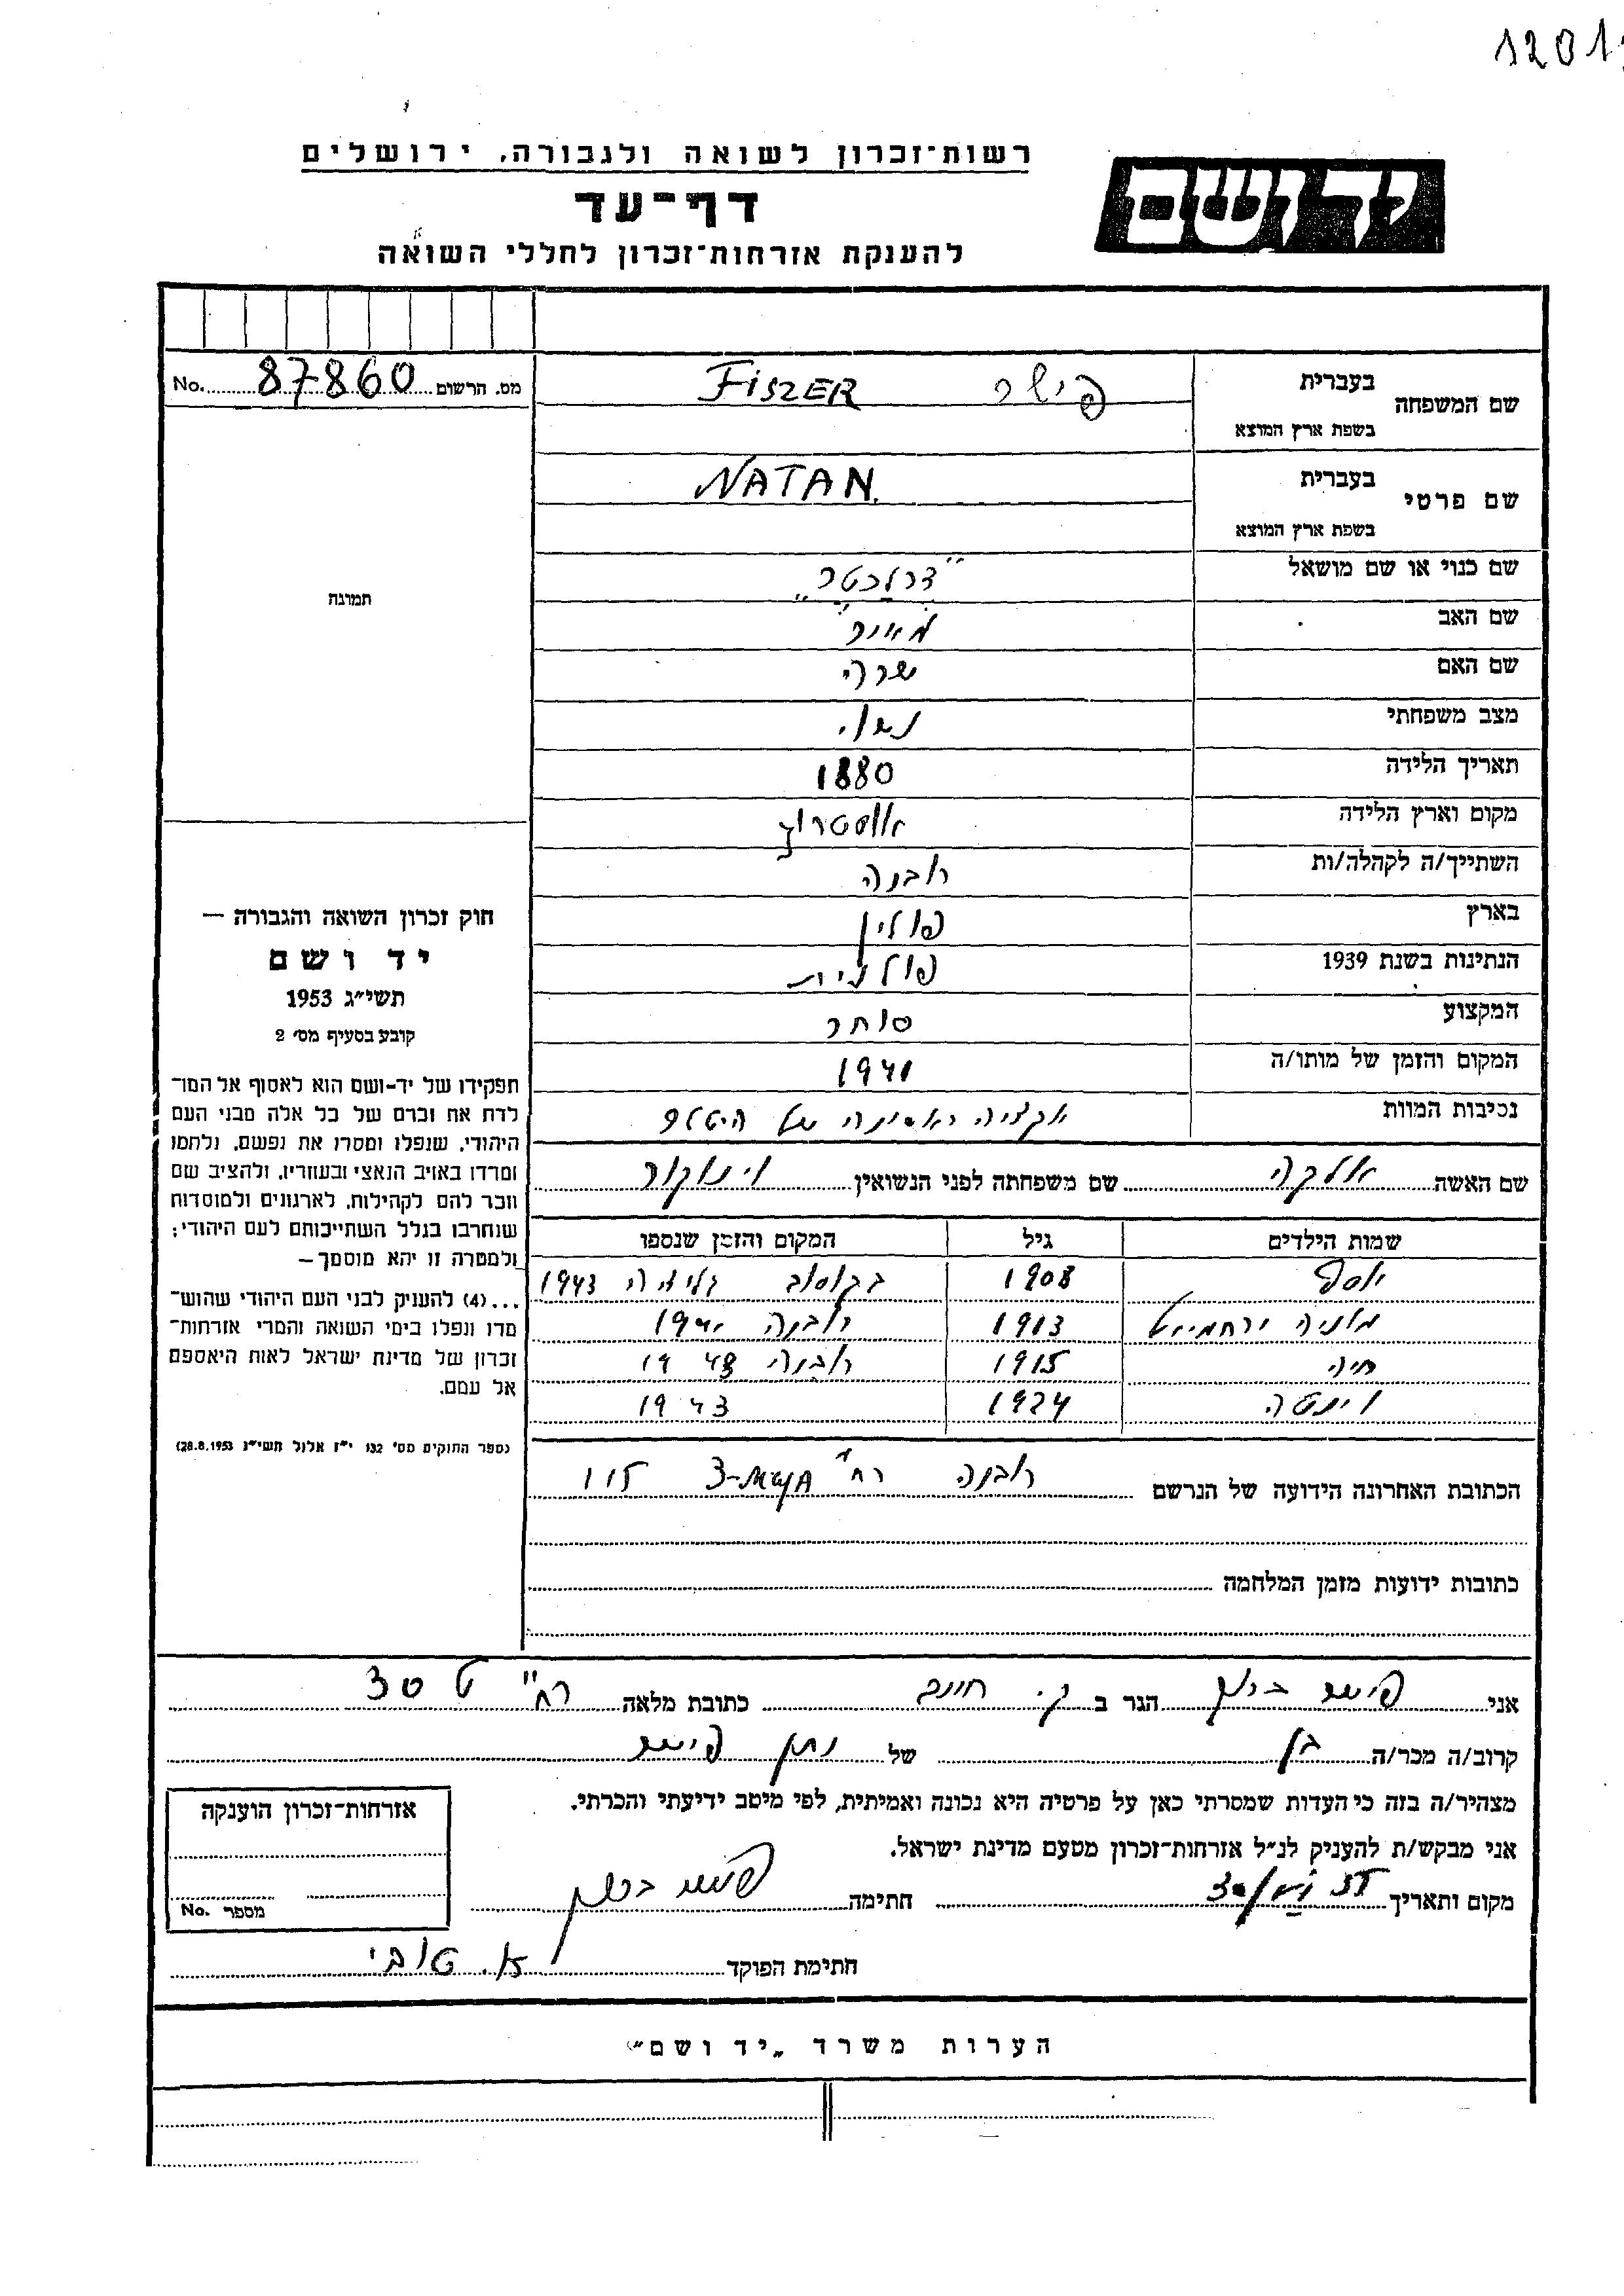 1201
רשות־זכרון לשואה ולגבורה, ירושלים
יד ושם
דף־עד
להענקת אזרחות־זכרון לחללי השואה
מס. הרשום 87860 No.
שם המשפחה בעברית פישר FISZER
בשפת ארץ המוצא
שם פרטי בעברית NATAN
בשפת ארץ המוצא
שם כנוי או שם מושאל
תמונה
שם האב מאיר
שם האם שרה
מצב משפחתי נשוי
תאריך הלידה 1880
מקום וארץ הלידה
השתייך/ה לקהלה/ות רובנה
בארץ פולין
הנתינות בשנת 1939 פולנית
המקצוע סוחר
המקום והזמן של מותו/ה 1941
נסיבות המוות אקציה ראשונה של היטלר
שם האשה אלקה שם משפחתה לפני הנשואין וינוקור
שמות הילדים גיל המקום והזמן שנספו
יוסף 1908 1943
מוניה ירחמיאל 1913 רובנה 1941
חיה 1915 רובנה 1943
1924 1943
הכתובת האחרונה הידועה של הנרשם רובנה רח' 115
כתובות ידועות מזמן המלחמה
חוק זכרון השואה והגבורה —
יד ושם
תשי״ג 1953
קובע בסעיף מס׳ 2
תפקידו של יד־ושם הוא לאסוף אל המו־
לדת את זכרם של כל אלה מבני העם
היהודי, שנפלו ומסרו את נפשם, נלחמו
ומרדו באויב הנאצי ובעוזריו, ולהציב שם
וזכר להם לקהילות, לארגונים ולמוסדות
שנחרבו בגלל השתייכותם לעם היהודי;
ולמטרה זו יהא מוסמך—
...(4) להעניק לבני העם היהודי שהוש־
מדו ונפלו בימי השואה והמרי אזרחות־
זכרון של מדינת ישראל לאות היאספם
אל עמם.
(ספר החוקים מס׳ 132 י״ז אלול תשי״ג 28.8.1953)
אני פישר הגר ב ק. חיים כתובת מלאה רח' ט 30
קרוב/ה מכר/ה בן של נתן פישר
מצהיר/ה בזה כי העדות שמסרתי כאן על פרטיה היא נכונה ואמיתית, לפי מיטב ידיעתי והכרתי.
אני מבקש/ת להעניק לנ״ל אזרחות־זכרון מטעם מדינת ישראל.
מקום ותאריך חתימה פישר
חתימת הפוקד א. טובי
אזרחות־זכרון הוענקה
מספר No.
הערות משרד „יד ושם״